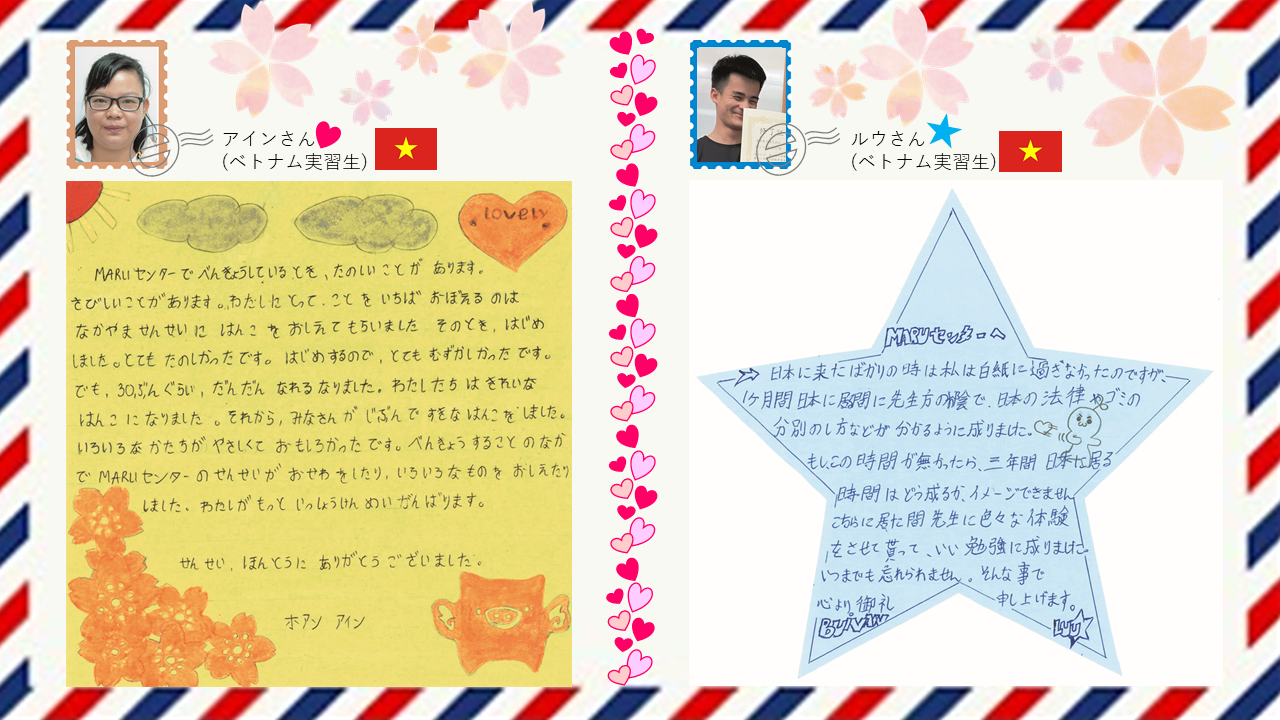 アインさん
(ベトナム実習生)
lovely
MARUセンターでべんきょうしているとき、たのしいことが あります。
さびしいことがあります。わたしにとって、ことを いちば おぼえるのは
なかやま せんせいに はんこ を おしえて もらいました そのとき、はじめ
ました。とても たのしかったです。 はじめするので、とても むずかしかったです。
でも、30ぷんぐらい、だんだん なれるなりました。わたしたち は きれいな
はんこ になりました 。それから、みなさんが じぶんで すきな はんこを しました。
いろいろな かたちが やさしくて おもしろかったです。べんきょう することのなか
で MARUセンターのせんせいが おせわをしたり、いろいろなものを おしえたり
しました、わたしが もっと いっしょうけんめい がんばります。
せんせい、ほんとうに ありがとうございました。
ホアン アイン
ルウさん
(ベトナム実習生)
MARUセンターへ
日本に来たばかりの時は私は白紙に過ぎなかったのですが、
1ヶ月間日本に居間に先生方の陰で、日本の法律やゴミの
分別のし方などが分かるように成りました。
もしこの時間が無かったら、三年間 日本に居る
時間はどう成るか、イメージできません
こちらに居た間先生に色々な体験
をさせて貰って、いい勉強に成りました。
いつまでも忘れられません。そんな事で
心より御礼 申し上げます。
BUI VAN LUU